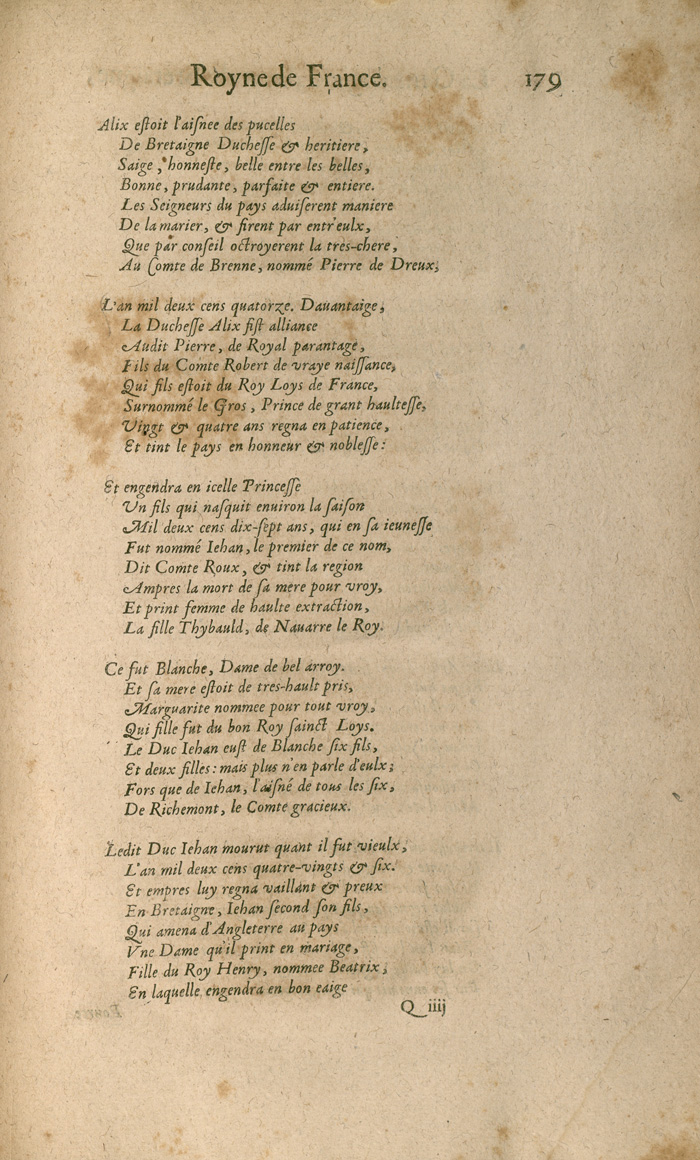 Royne de France. 179
Alix eſtoit l'aiſnee des pucelles
De Bretaigne Ducheſſe & heritiere,
Saige, honneſte, belle entre les belles,
Bonne, prudante, parfaite & entiere.
Les Seigneurs du pays aduiſerent maniere
De la marier, & firent par entr'eulx,
Que par conſeil octroyerent la tres-chere,
Au Comte de Brenne, nommé Pierre de Dreux,
L'an mil deux cens quatorze. Dauantaige,
La Ducheſſe Alix fiſt alliance
Audit Pierre, de Royal parantage,
Fils du Comte Robert de vraye naiſſance,
Qui fils eſtoit du Roy Loys de France,
Surnommé le Gros, Prince de grant haulteſſe,
Vingt & quatre ans regna en patience,
Et tint le pays en honneur & nobleſſe:
Et engendra en icelle Princeſſe
Un fils qui naſquit enuiron la ſaiſon
Mil deux cens dix-ſept ans, qui en ſa ieuneſſe
Fut nommé Iehan, le premier de ce nom,
Dit Comte Roux, & tint la region
Ampres la mort de ſa mere pour vroy,
Et print femme de haulte extraction,
La fille Thybauld, de Nauarre le Roy.
Ce fut Blanche, Dame de bel arroy.
Et ſa mere eſtoit de tres-hault pris,
Marguarite nommee pour tout vroy,
Qui fille fut du bon Roy ſainct Loys.
Le Duc Iehan euſt de Blanche ſix fils,
Et deux filles: mais plus n'en parle d'eulx;
Fors que de Iehan, l'aiſné de tous les ſix,
De Richemont, le Comte gracieux.
Ledit Duc Iehan mourut quant il fut vieulx,
L'an mil deux cens quatre-vingts & ſix.
Et empres luy regna vaillant & preux
En Bretaigne, Iehan ſecond ſon fils,
Qui amena d'Angleterre au pays
Vne Dame qu'il print en mariage,
Fille du Roy Henry, nommee Beatrix,
En laquelle engendra en bon eaige
Q iiij